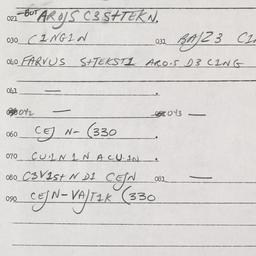 021 BUT AROJS C3S+TEKN.
030 CINGIN 031 RAJZ3
060 FARVUS S+TEKST1 ARO.S D3 CING
061 —
042 — 043 —
060 CEJ N- (330
070 CU.IN 1 N A CU.IN.
080 C3V1S+ N D1 CEJN 081 —
090 CEJN-VAJT1K (330